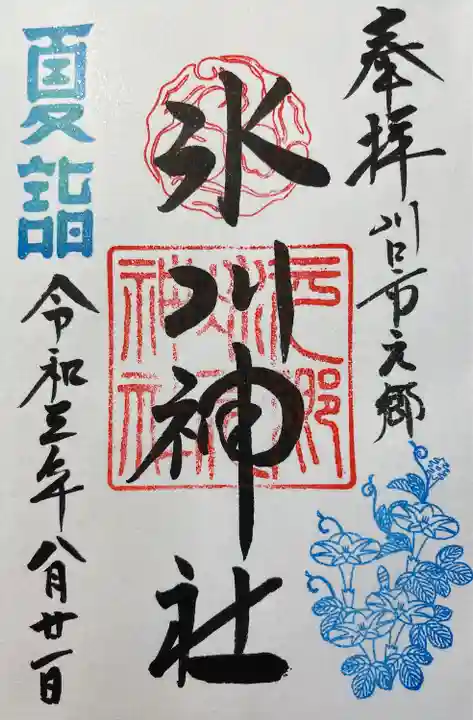 奉拝
川口市元郷
氷川神社
夏詣
令和三年八月廿一日